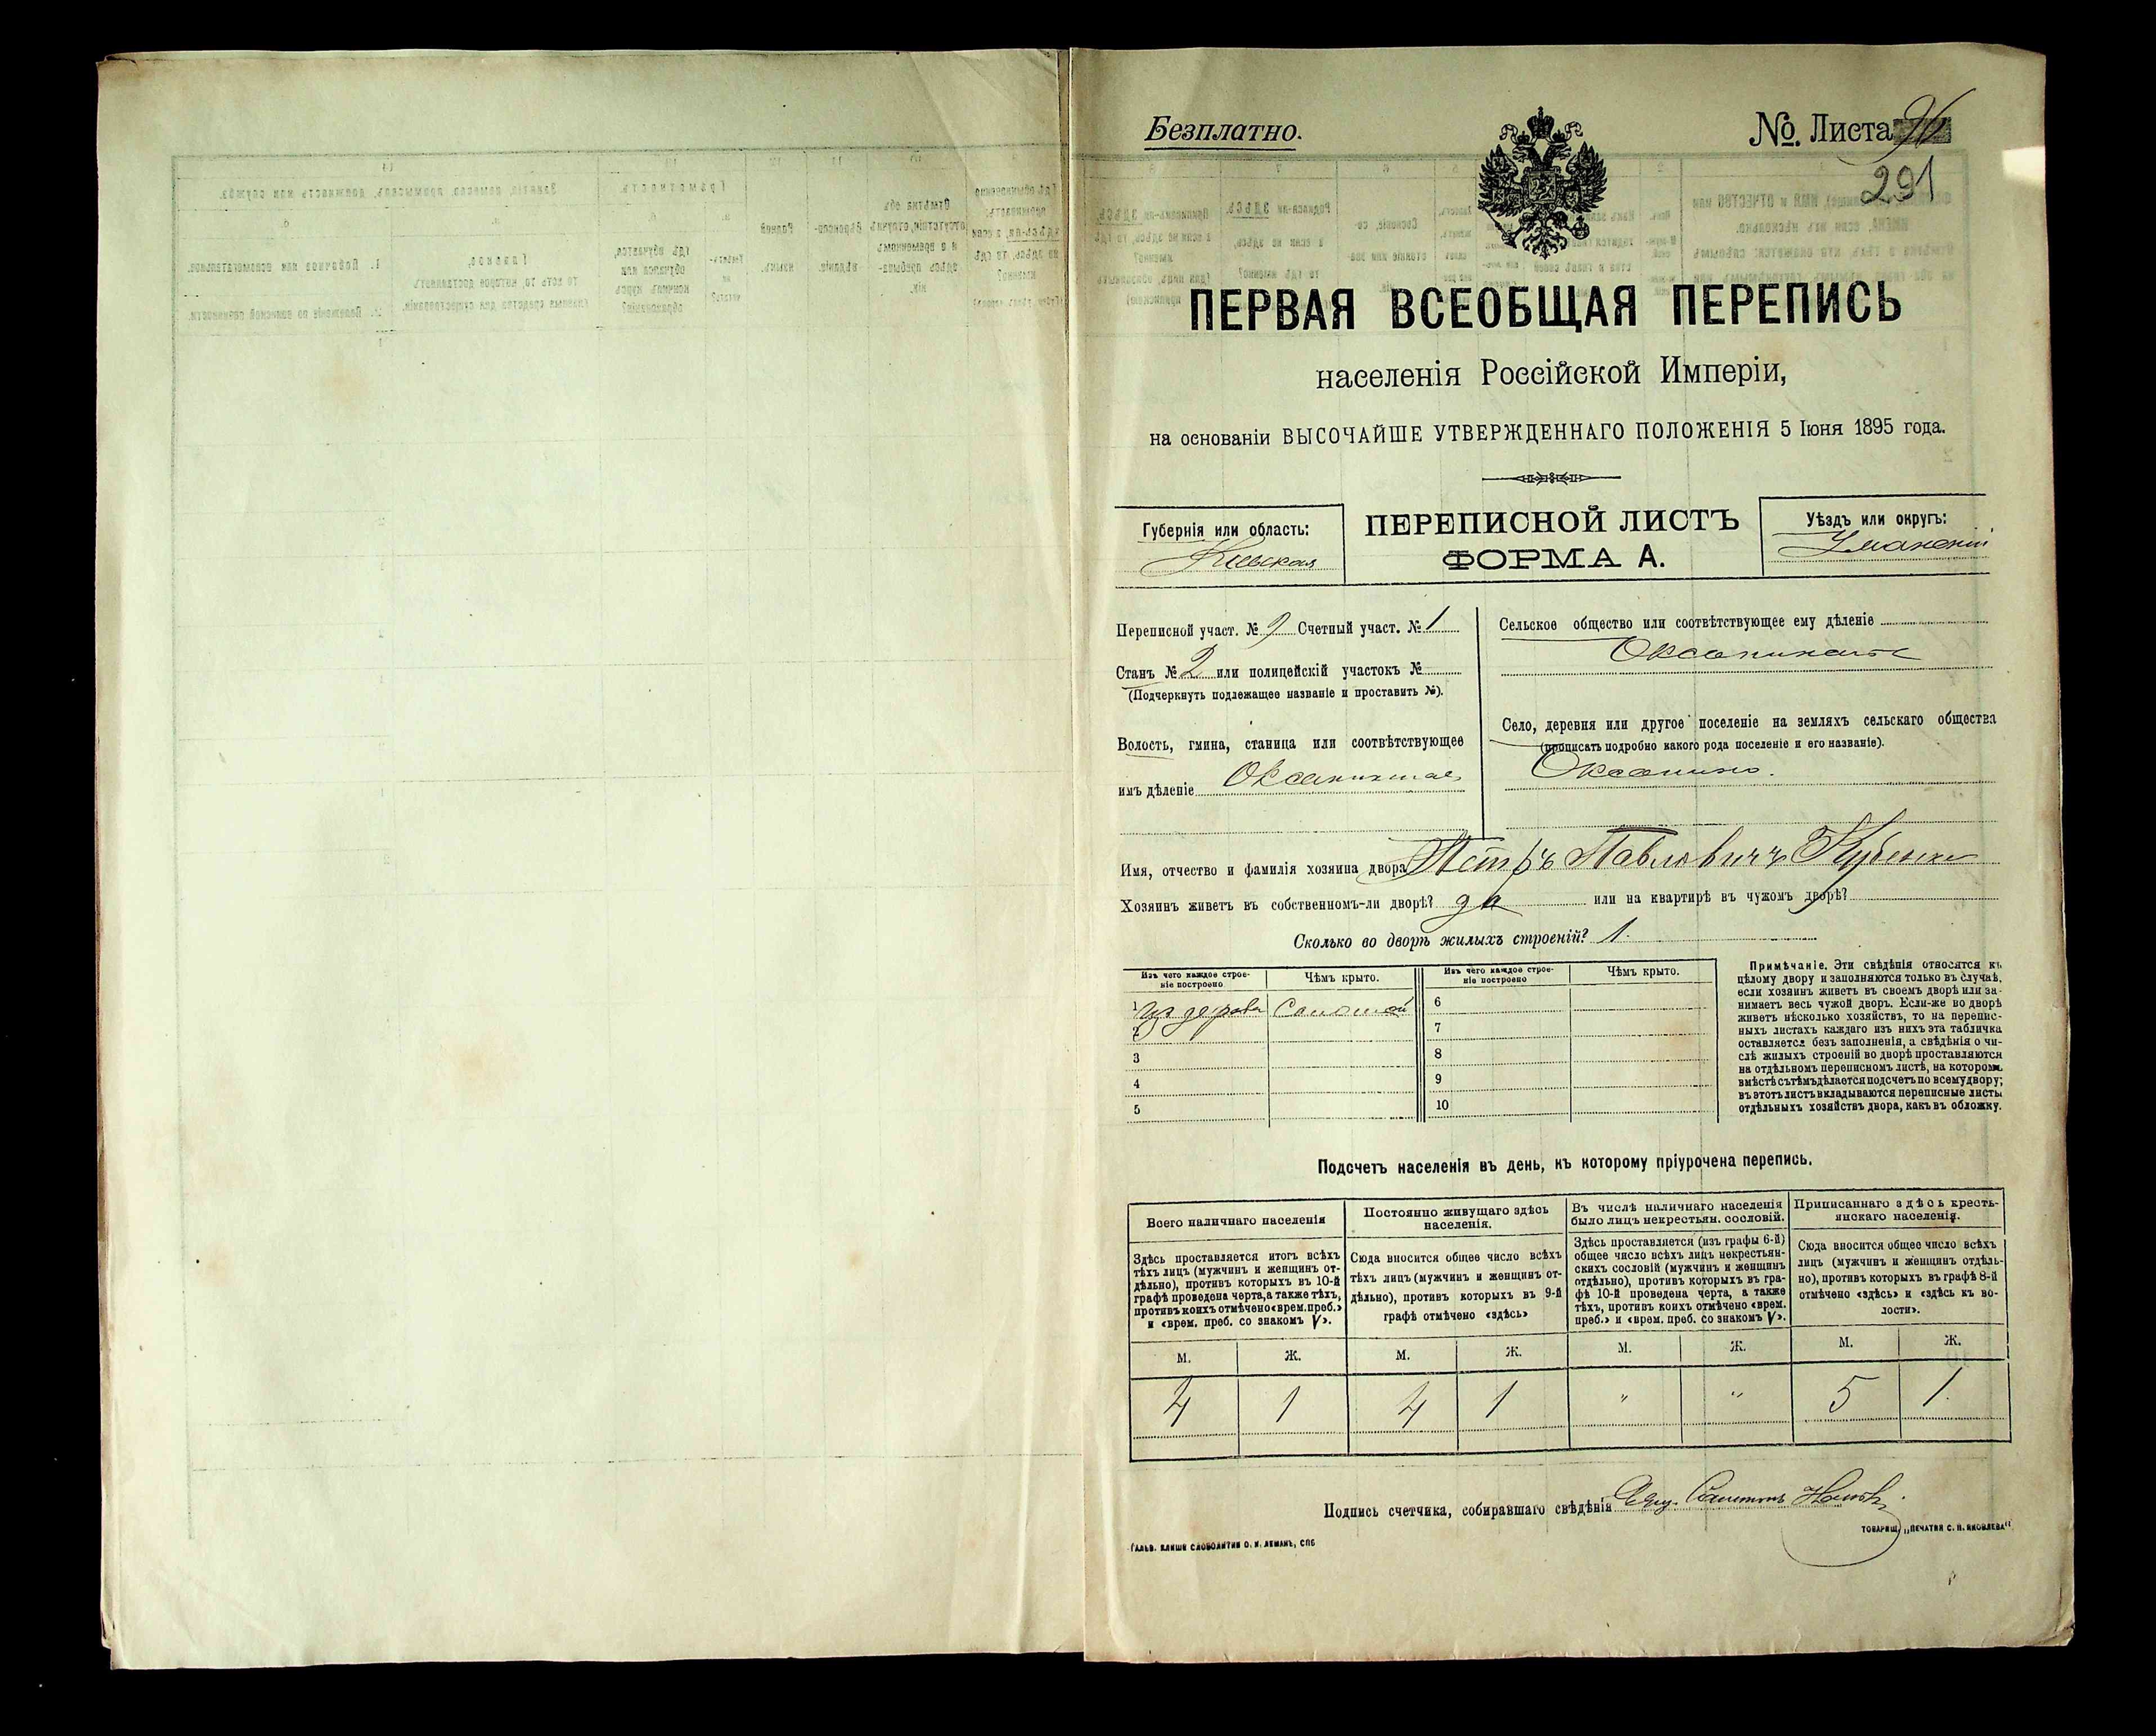 Безплатно.
№. Листа 96
291
ПЕРВАЯ ВСЕОБЩАЯ ПЕРЕПИСЬ
населенія Россійской Имперіи,
на основаніи ВЫСОЧАЙШЕ УТВЕРЖДЕННАГО ПОЛОЖЕНІЯ 5 Іюня 1895 года.
Губернія или область:
Кіевская
ПЕРЕПИСНОЙ ЛИСТЪ
ФОРМА А.
Уѣздъ или округъ:
Уманскій
Переписной участ. № 9 Счетный участ. № 1
Станъ № 2 или полицейскій участокъ №
(Подчеркнуть подлежащее названіе и проставить №).
Волость, гмина, станица или соотвѣтствующее
имъ дѣленіе Оксанинская
Сельское общество или соотвѣтствующее ему дѣленіе
Оксанинское
Село, деревня или другое поселеніе на земляхъ сельскаго общества
(прописать подробно какого рода поселеніе и его названіе).
Оксанино.
Имя, отчество и фамилія хозяина двора Петръ Павловичъ
Хозяинъ живетъ въ собственномъ-ли дворѣ? да или на квартирѣ въ чужомъ дворѣ?
Сколько во дворѣ жилыхъ строеній? 1.
Изъ чего каждое строе-
ніе построено
Чѣмъ крыто.
Изъ чего каждое строе-
ніе построено
Чѣмъ крыто.
1 изъ дерева Соломой
2
3
4
5
6
7
8
9
10
Примѣчаніе. Эти свѣдѣнія относятся къ
цѣлому двору и заполняются только въ случаѣ,
если хозяинъ живетъ въ своемъ дворѣ или за-
нимаетъ весь чужой дворъ. Если-же во дворѣ
живетъ нѣсколько хозяйствъ, то на перепис-
ныхъ листахъ каждаго изъ нихъ эта табличка
оставляется безъ заполненія, а свѣдѣнія о чи-
слѣ жилыхъ строеній во дворѣ проставляются
на отдѣльномъ переписномъ листѣ, на которомъ
вмѣстѣ съ тѣмъ дѣлается подсчетъ по всему двору;
въ этотъ листъ вкладываются переписные листы
отдѣльныхъ хозяйствъ двора, какъ въ обложку.
Подсчетъ населенія въ день, къ которому пріурочена перепись.
Всего наличнаго населенія
Здѣсь проставляется итогъ всѣхъ
тѣхъ лицъ (мужчинъ и женщинъ от-
дѣльно), противъ которыхъ въ 10-й
графѣ проведена черта, а также тѣхъ,
противъ коихъ отмѣчено «врем. преб.»
и «врем. преб. со знакомъ V».
Постоянно живущаго здѣсь
населенія.
Сюда вносится общее число всѣхъ
тѣхъ лицъ (мужчинъ и женщинъ от-
дѣльно), противъ которыхъ въ 9-й
графѣ отмѣчено «здѣсь»
Въ числѣ наличнаго населенія
было лицъ некрестьян. сословій.
Здѣсь проставляется (изъ графы 6-й)
общее число всѣхъ лицъ некрестьян-
скихъ сословій (мужчинъ и женщинъ
отдѣльно), противъ которыхъ въ гра-
фѣ 10-й проведена черта, а также
тѣхъ, противъ коихъ отмѣчено «врем.
преб.» и «врем. преб. со знакомъ V».
Приписаннаго здѣсь кресть-
янскаго населенія.
Сюда вносится общее число всѣхъ
лицъ (мужчинъ и женщинъ отдѣль-
но), противъ которыхъ въ графѣ 8-й
отмѣчено «здѣсь» и «здѣсь къ во-
лости».
М. Ж. М. Ж. М. Ж. М. Ж.
4 1 4 1 " " 5 1.
Подпись счетчика, собиравшаго свѣдѣнія
ГАЛЬВ. КЛИШЕ СЛОВОЛИТНИ О. И. ЛЕМАНЪ, СПБ
ТОВАРИЩ. „ПЕЧАТНЯ С. П. ЯКОВЛЕВА"